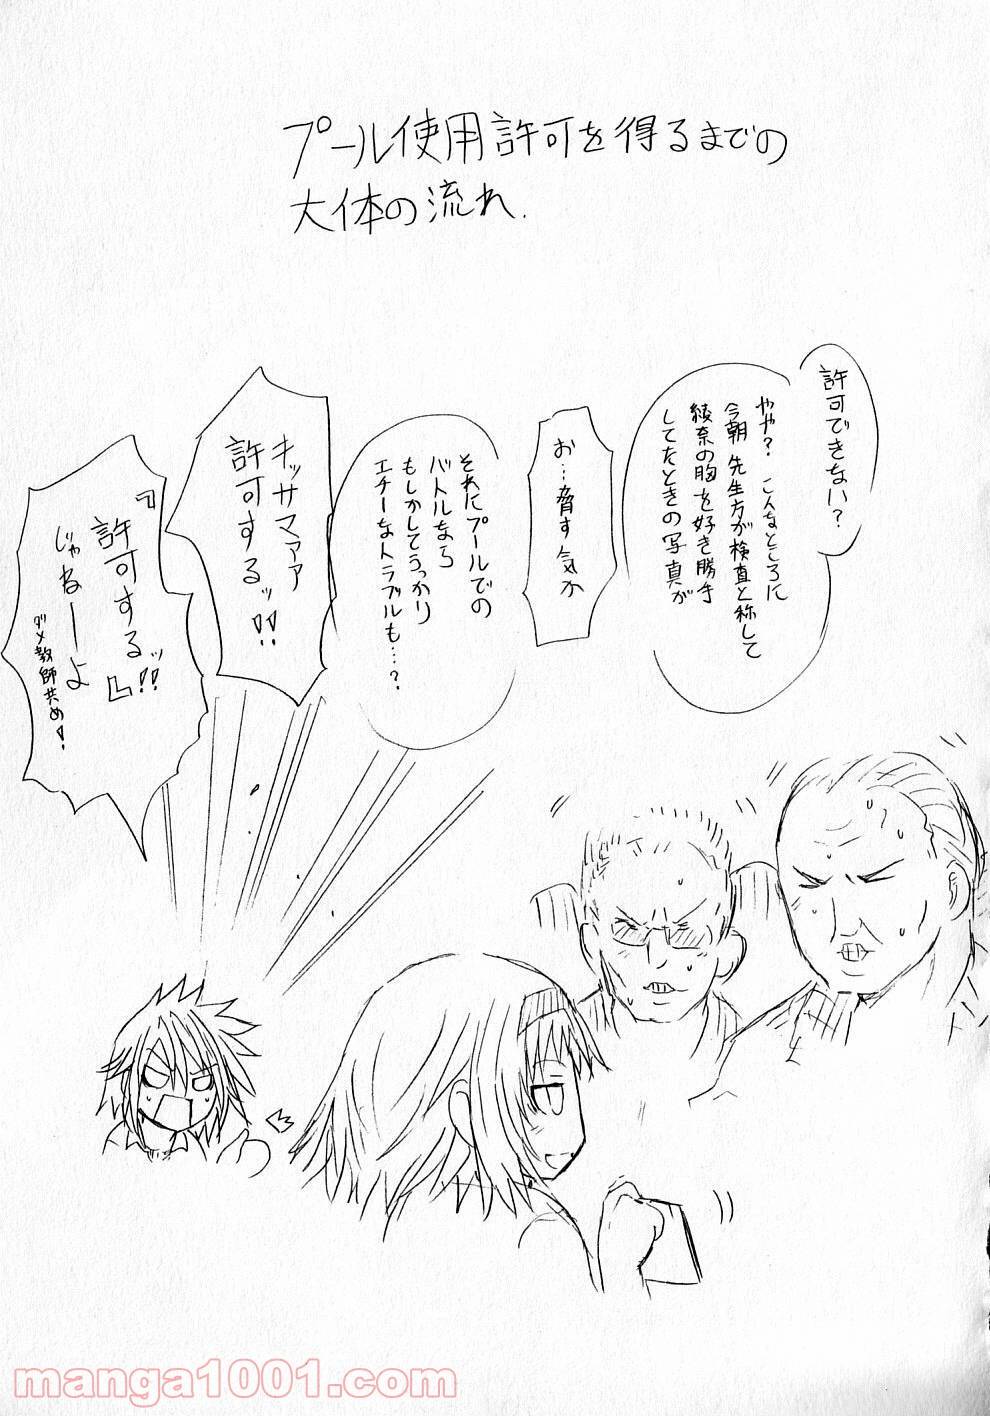 プール使用許可を得るまでの
大体の流れ.
許可できない?
やや? こんなところに
今朝先生方が検査と称して
綾奈の胸を好き勝手
してたときの写真が
お…脅す気か
それにプールでの
バトルなら
もしかしてうっかり
エチーなトラブルも…?
キッサマァァ
許可するッ!!
『許可するッ!!』
じゃねーよ
ダメ教師共め!
manga1001.com